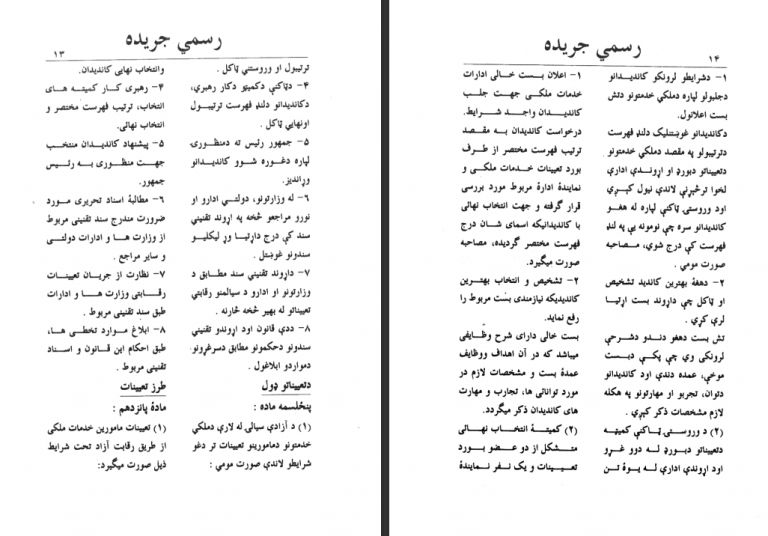 رسمي جریده
۱۳
ترتیبول او وروستني ټاکل .
۴- دټاکنې دکمیټو دکار رهبري،
دکاندیدانو دلنډ فهرست ترتیبول
اونهایي ټاکل .
۵- جمهور رئیس ته دمنظورۍ
لپاره دغوره شوو کاندیدانو
وړاندیز.
۶- له وزارتونو، دولتي ادارو او
نورو مراجعو څخه په اړوند تقنیني
سند کې درج داړتیا وړ لیکلیو
سندونو غوښتل .
۷- داړوند تقنیني سند مطابق د
وزارتونو او ادارو د سیالمنو رقابتي
تعییناتو له بهیر څخه څارنه .
۸- ددې قانون اود اړوندو تقنیني
سندونو دحکمونو مطابق دسرغړونو
دمواردو ابلاغول .
دتعییناتو ډول
پنځلسمه ماده :
(۱) د آزادې سیالۍ له لارې دملکي
خدمتونو دمامورینو تعیینات تر دغو
شرایطو لاندې صورت مومي :
وانتخاب نهایی کاندیدان.
۴- رهبری کار کمیته های
انتخاب، ترتیب فهرست مختصر و
انتخاب نهائی.
۵- پیشنهاد کاندیدان منتخب
جهت منظوری به رئیس
جمهور.
۶- مطالبۀ اسناد تحریری مورد
ضرورت مندرج سند تقنینی مربوط
از وزارت ها و ادارات دولتی
و سایر مراجع .
۷- نظارت از جریان تعیینات
رقابتی وزارت ها و ادارات
طبق سند تقنینی مربوط .
۸- ابلاغ موارد تخطی ها،
طبق احکام این قانون و اسناد
تقنینی مربوط .
طرز تعیینات
مادۀ پانزدهم :
(۱) تعیینات مامورین خدمات ملکی
از طریق رقابت آزاد تحت شرایط
ذیل صورت میگیرد:
رسمي جریده
۱۴
۱- دشرایطو لرونکو کاندیدانو
دجلبولو لپاره دملکي خدمتونو دتش
بست اعلانول.
دکاندیدانو غوښتنلیک دلنډ فهرست
دترتیبولو په مقصد دملکي خدمتونو
دتعییناتو دبورډ او اړوندې ادارې
لخوا ترڅېړنې لاندې نیول کېږي
اود وروستۍ ټاکنې لپاره له هغو
کاندیدانو سره چې نومونه یې په لنډ
فهرست کې درج شوي، مصاحبه
صورت مومي .
۲- دهغۀ بهترین کاندید تشخیص
او ټاکل چې داړوند بست اړتیا
لرې کړي .
تش بست دهغو دندو دشرحې
لرونکی وي چې پکې دبست
موخې، عمده دندې اود کاندیدانو
دتوان، تجربو او مهارتونو په هکله
لازم مشخصات ذکر کېږي .
(۲) د وروستۍ ټاکنې کمیټه
دتعییناتو دبورډ له دوو غړو
اود اړوندې ادارې له یوۀ تن
۱- اعلان بست خالی ادارات
خدمات ملکی جهت جلب
کاندیدان واجد شرایط.
درخواست کاندیدان به مقصد
ترتیب فهرست مختصر از طرف
بورد تعیینات خدمات ملکی و
نمایندۀ ادارۀ مربوط مورد بررسی
قرار گرفته و جهت انتخاب نهائی
با کاندیدانیکه اسمای شان درج
فهرست مختصر گردیده، مصاحبه
صورت میگیرد.
۲- تشخیص و انتخاب بهترین
کاندیدیکه نیازمندی بست مربوط را
رفع نماید.
بست خالی دارای شرح وظایفی
میباشد که در آن اهداف ووظایف
عمدۀ بست و مشخصات لازم در
مورد توانائی ها، تجارب و مهارت
های کاندیدان ذکر میگردد.
(۲) کمیتۀ انتخاب نهائی
متشکل از دو عضو بورد
تعیینات و یک نفر نمایندۀ